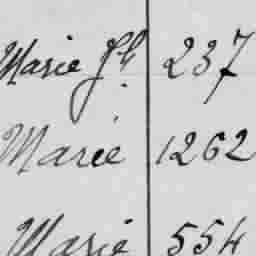 Marie Jh. 237
Marie 1262
Marie 554